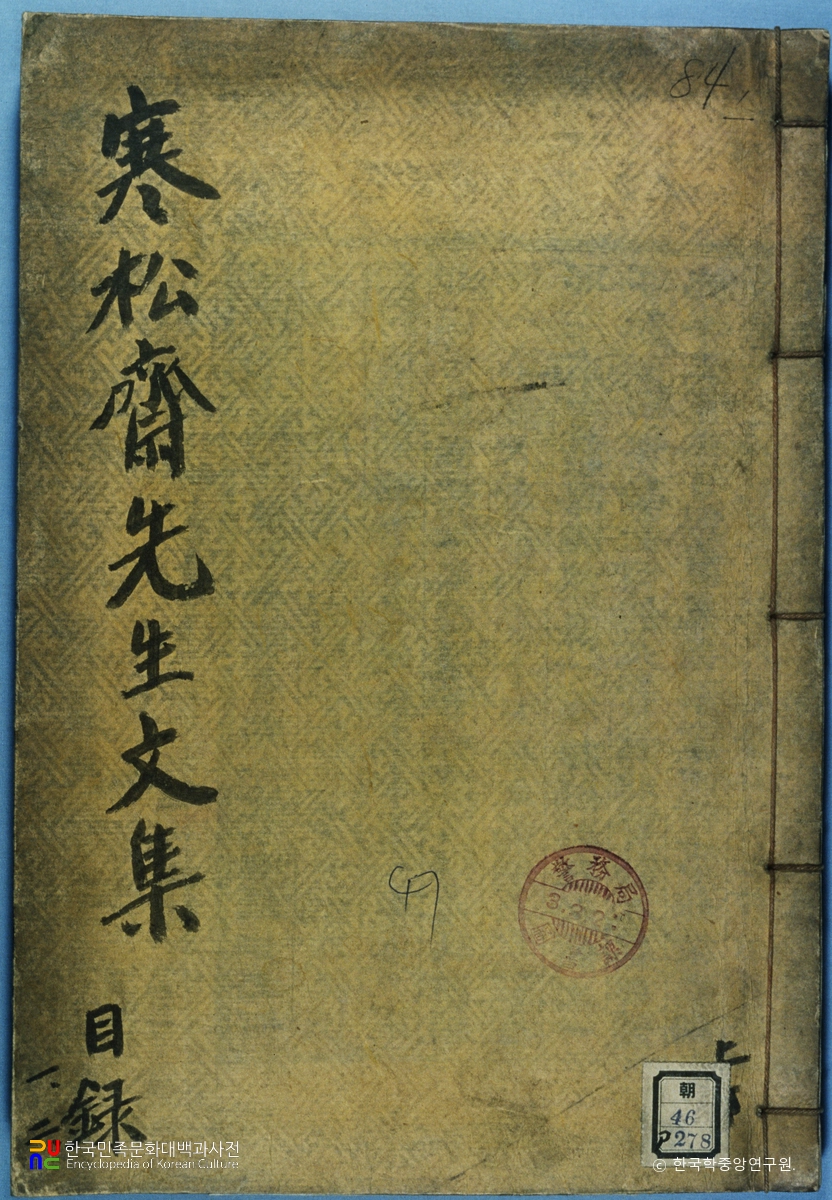 寒松齋先生文集
目録
一、二
84
47
務局
朝
46
P278
한국민족문화대백과사전
Encyclopedia of Korean Culture
© 한국학중앙연구원